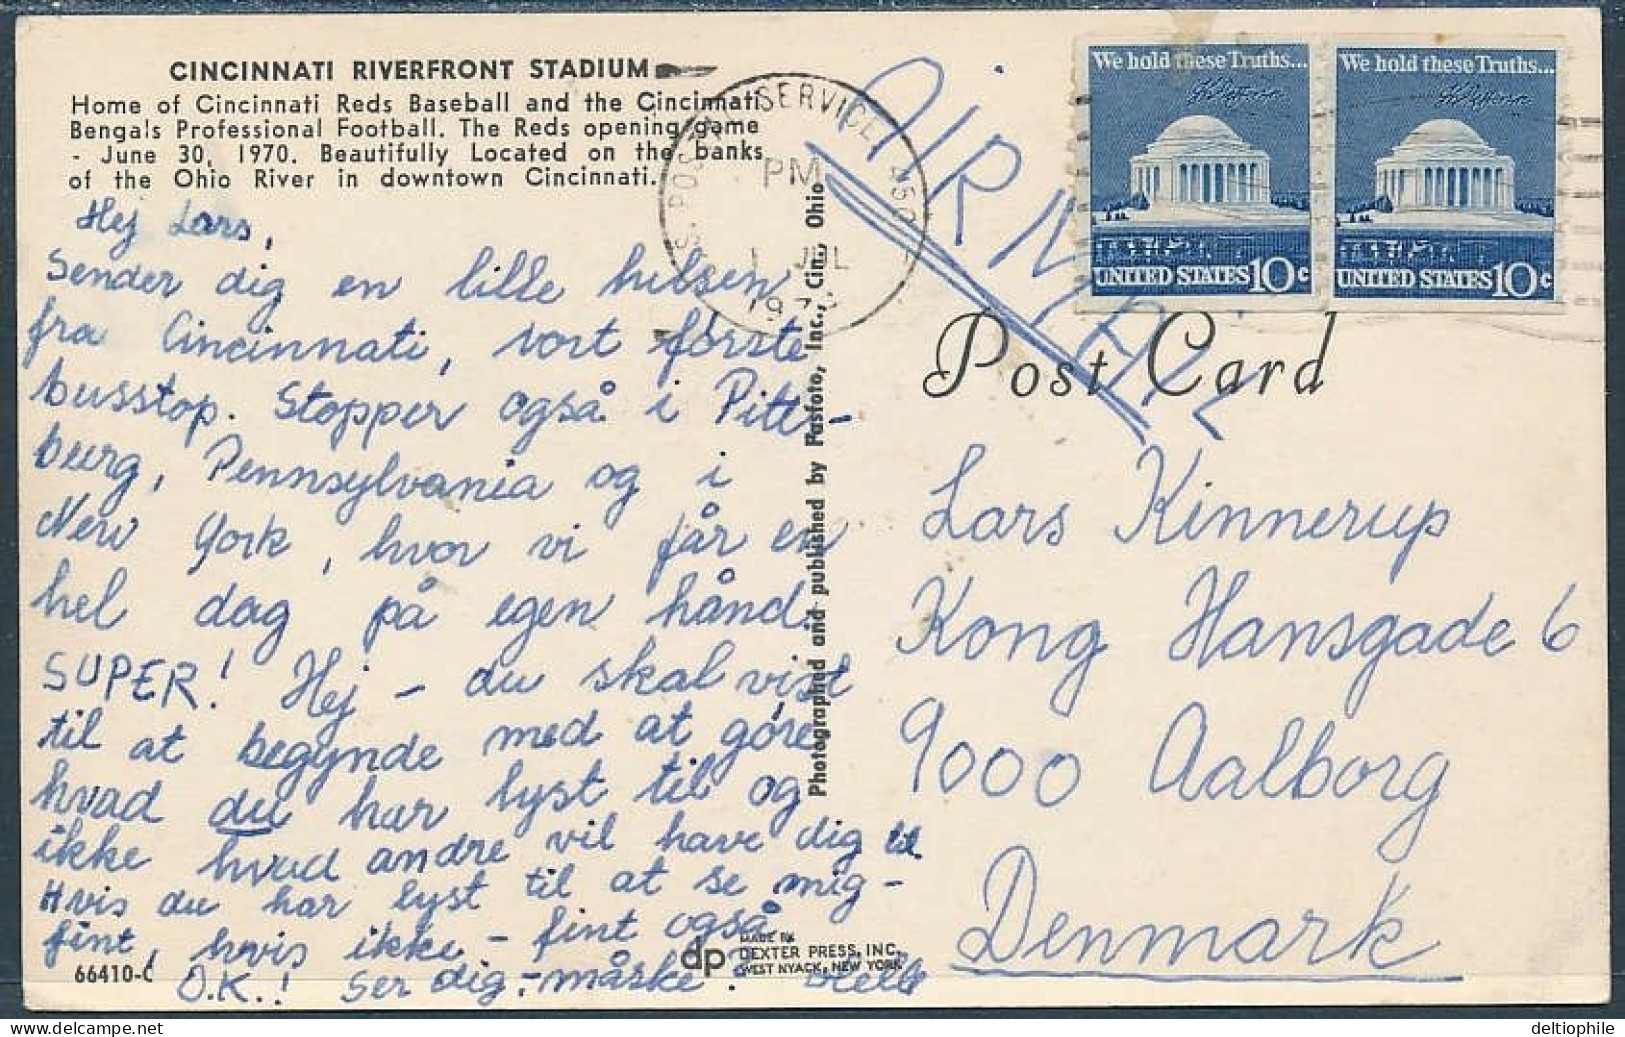 CINCINNATI RIVERFRONT STADIUM
Home of Cincinnati Reds Baseball and the Cincinnati
Bengals Professional Football. The Reds opening game
- June 30, 1970. Beautifully Located on the banks
of the Ohio River in downtown Cincinnati.
Hej Lars,
Sender dig en lille hilsen
fra Cincinnati, vort første
busstop. Stopper også i Pitts-
burg, Pennsylvania og i
New York, hvor vi får en
hel dag på egen hånd.
SUPER! Hej - du skal vist
til at begynde med at gøre
hvad du har lyst til og
ikke hvad andre vil have dig til.
Hvis du har lyst til at se mig -
fint, hvis ikke - fint også
O.K.! Ser dig - måske!
66410-C
dp
MADE BY
DEXTER PRESS, INC.
WEST NYACK, NEW YORK
Photographed and published by Fasfoto, Inc., Cin., Ohio
U.S. POSTAL SERVICE
PM
1 JUL
AIRMAIL
We hold these Truths...
UNITED STATES 10c
We hold these Truths...
UNITED STATES 10c
Post Card
Lars Kinnerup
Kong Hansgade 6
9000 Aalborg
Denmark
deltiophile